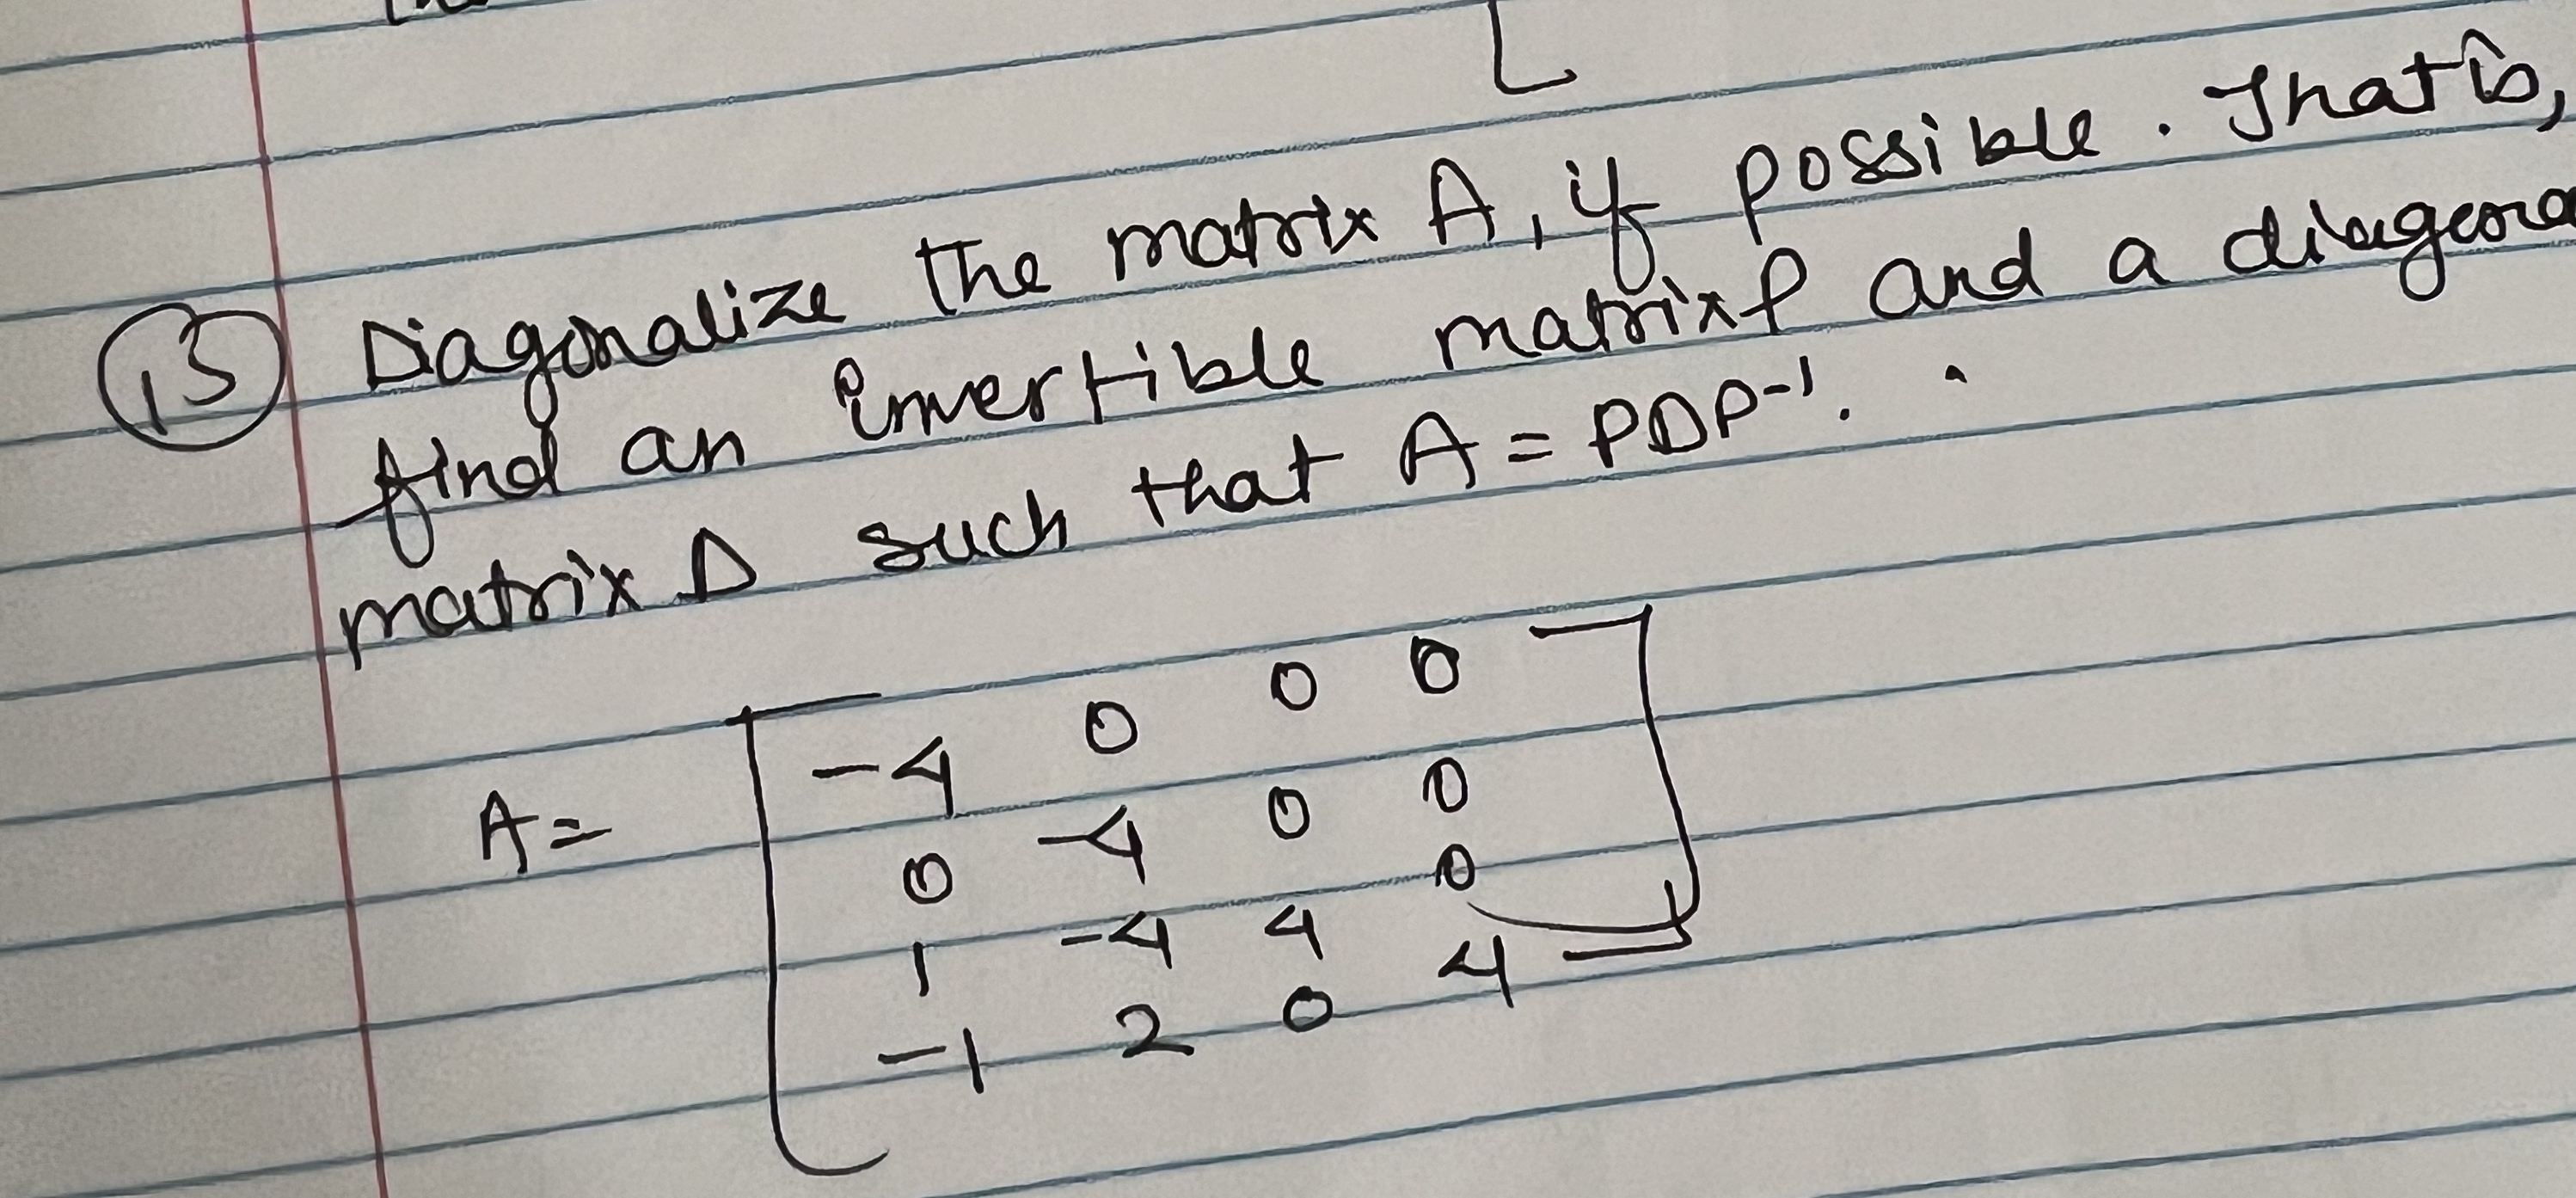 13 Diagonalize the matrix A, if possible. That is,
find an invertible matrix P and a
matrix D such that A = PDP⁻¹.
A =
-4 0 0 0
0 -4 0 0
1 -4 4 0
-1 2 0 4